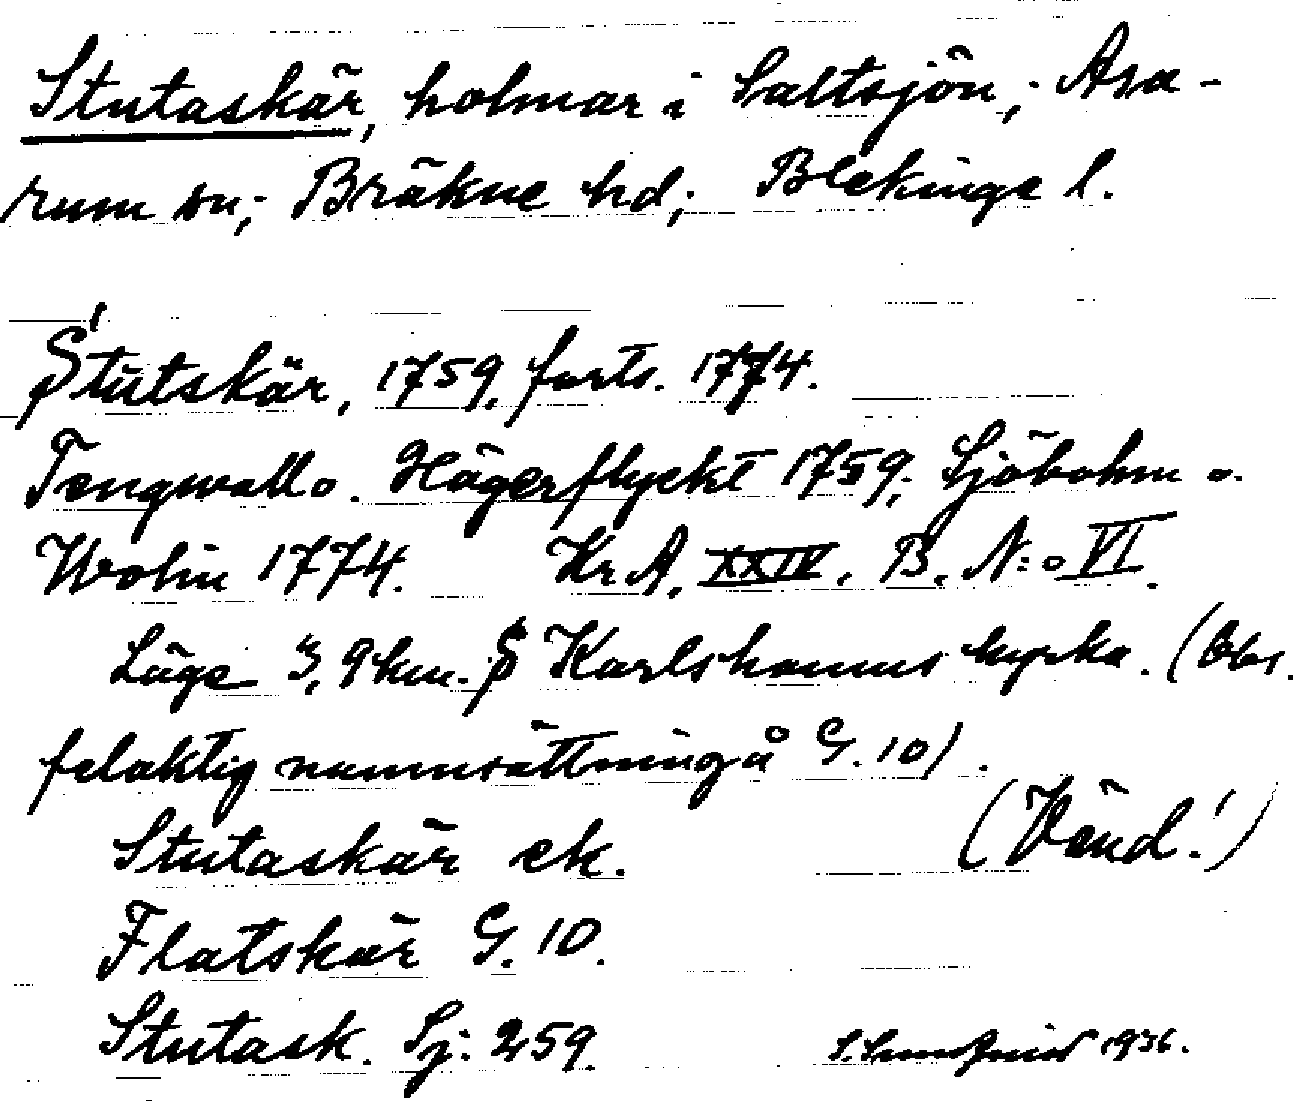 Stutaskär, holmar i Saltsjön, Asa-
rum sn; Bräkne hd; Blekinge l.
Stutskär, 1759, forts. 1774.
Tengwall o. Hägerflyckt 1759; Sjöbohm o.
Wolin 1774. Kr.A. XXIV. B. N:o VI.
Läge 3,9 km. S Karlshamns kyrka. (Obs.
felaktig namnsättning å G. 10).
(Vänd!)
Stutaskär ek.
Flatskär G. 10.
Stutask. Sj: 259.
1936.